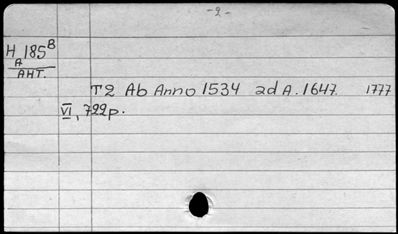 -2-
H 185 B
A
АНТ.
T2 Ab Anno 1534 ad A. 1647. 1777
VI, 722p.